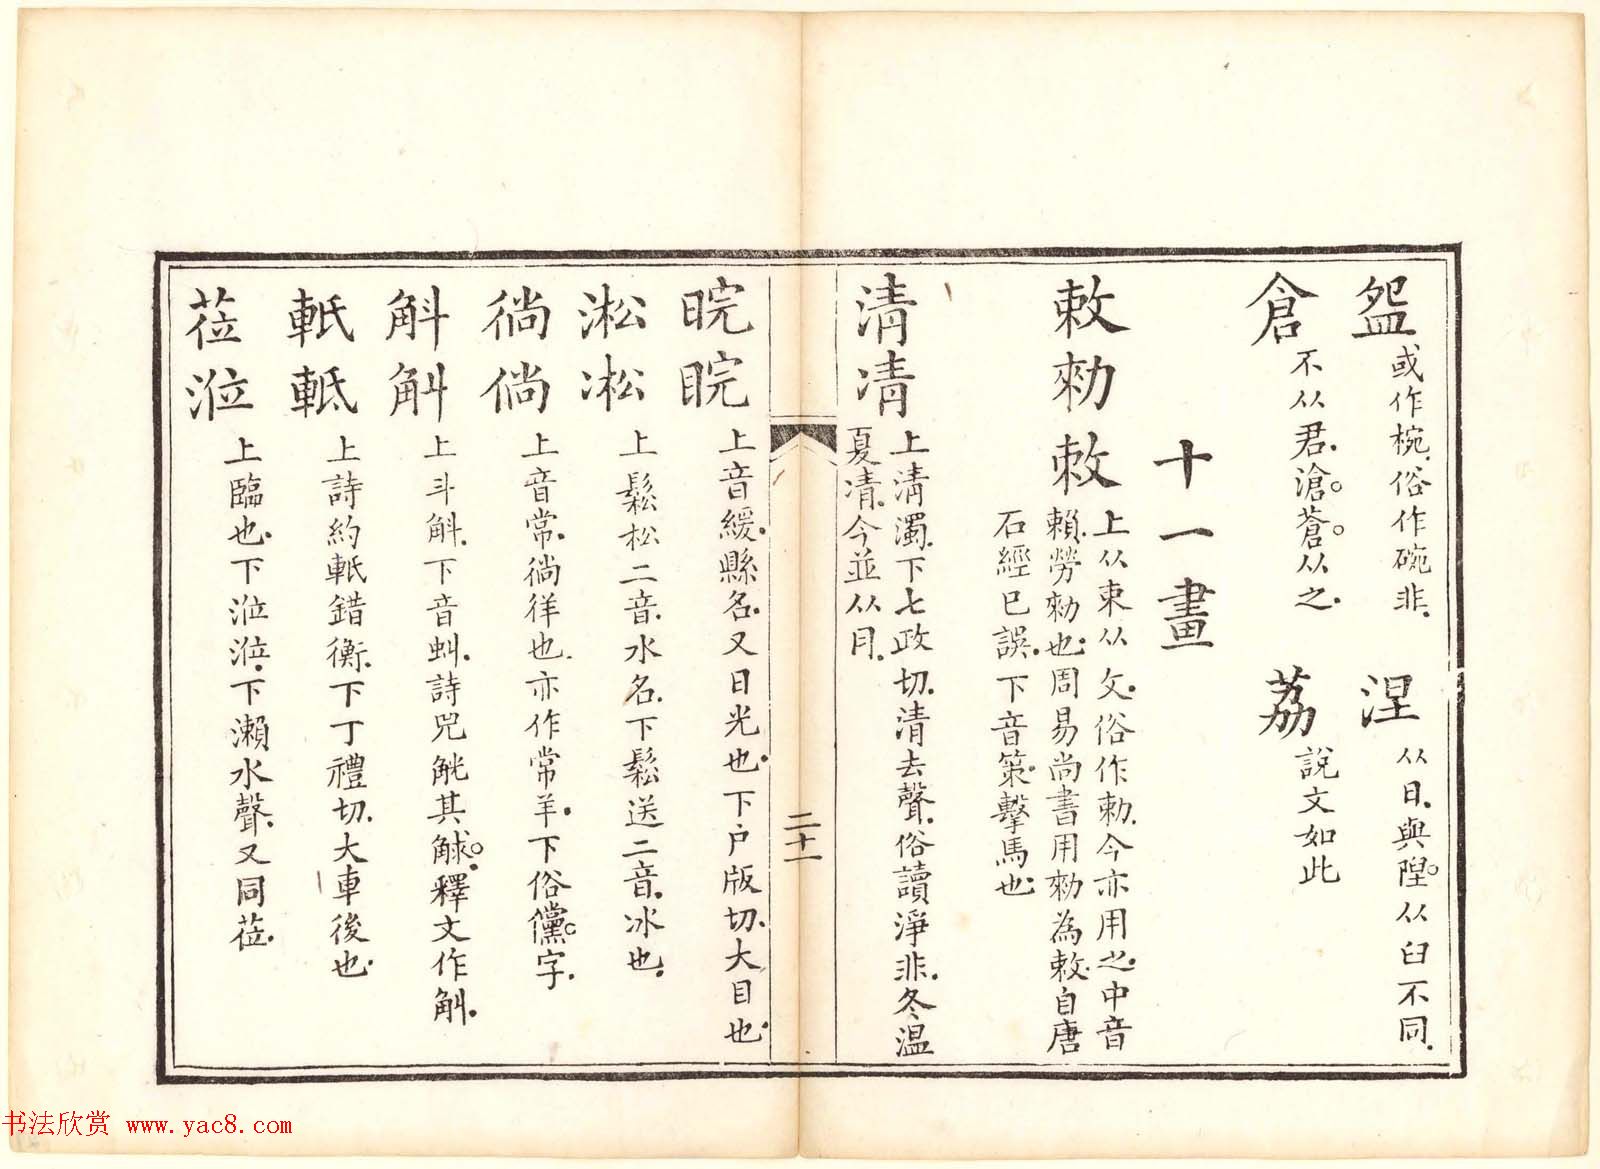 盌 或作椀俗作碗非 涅 从日與陧从臼不同
倉 不从君滄蒼从之 荔 說文如此
十一畫
敕勑敇 上从束从攵俗作勅今亦用之中音
賴勞勑也周易尚書用勑為敕自唐
石經已誤下音策擊馬也
清凊 上清濁下七政切清去聲俗讀淨非冬温
夏凊今並从月
二十一
晥睆 上音緩縣名又日光也下户版切大目也
淞凇 上鬆松二音水名下鬆送二音冰也
徜倘 上音常徜徉也亦作常羊下俗儻字
斛斠 上斗斛下音虯詩兕觥其觩釋文作斛
軝軧 上詩約軝錯衡下丁禮切大車後也
莅涖 上臨也下涖涖下瀨水聲又同莅
书法欣赏 www.yac8.com